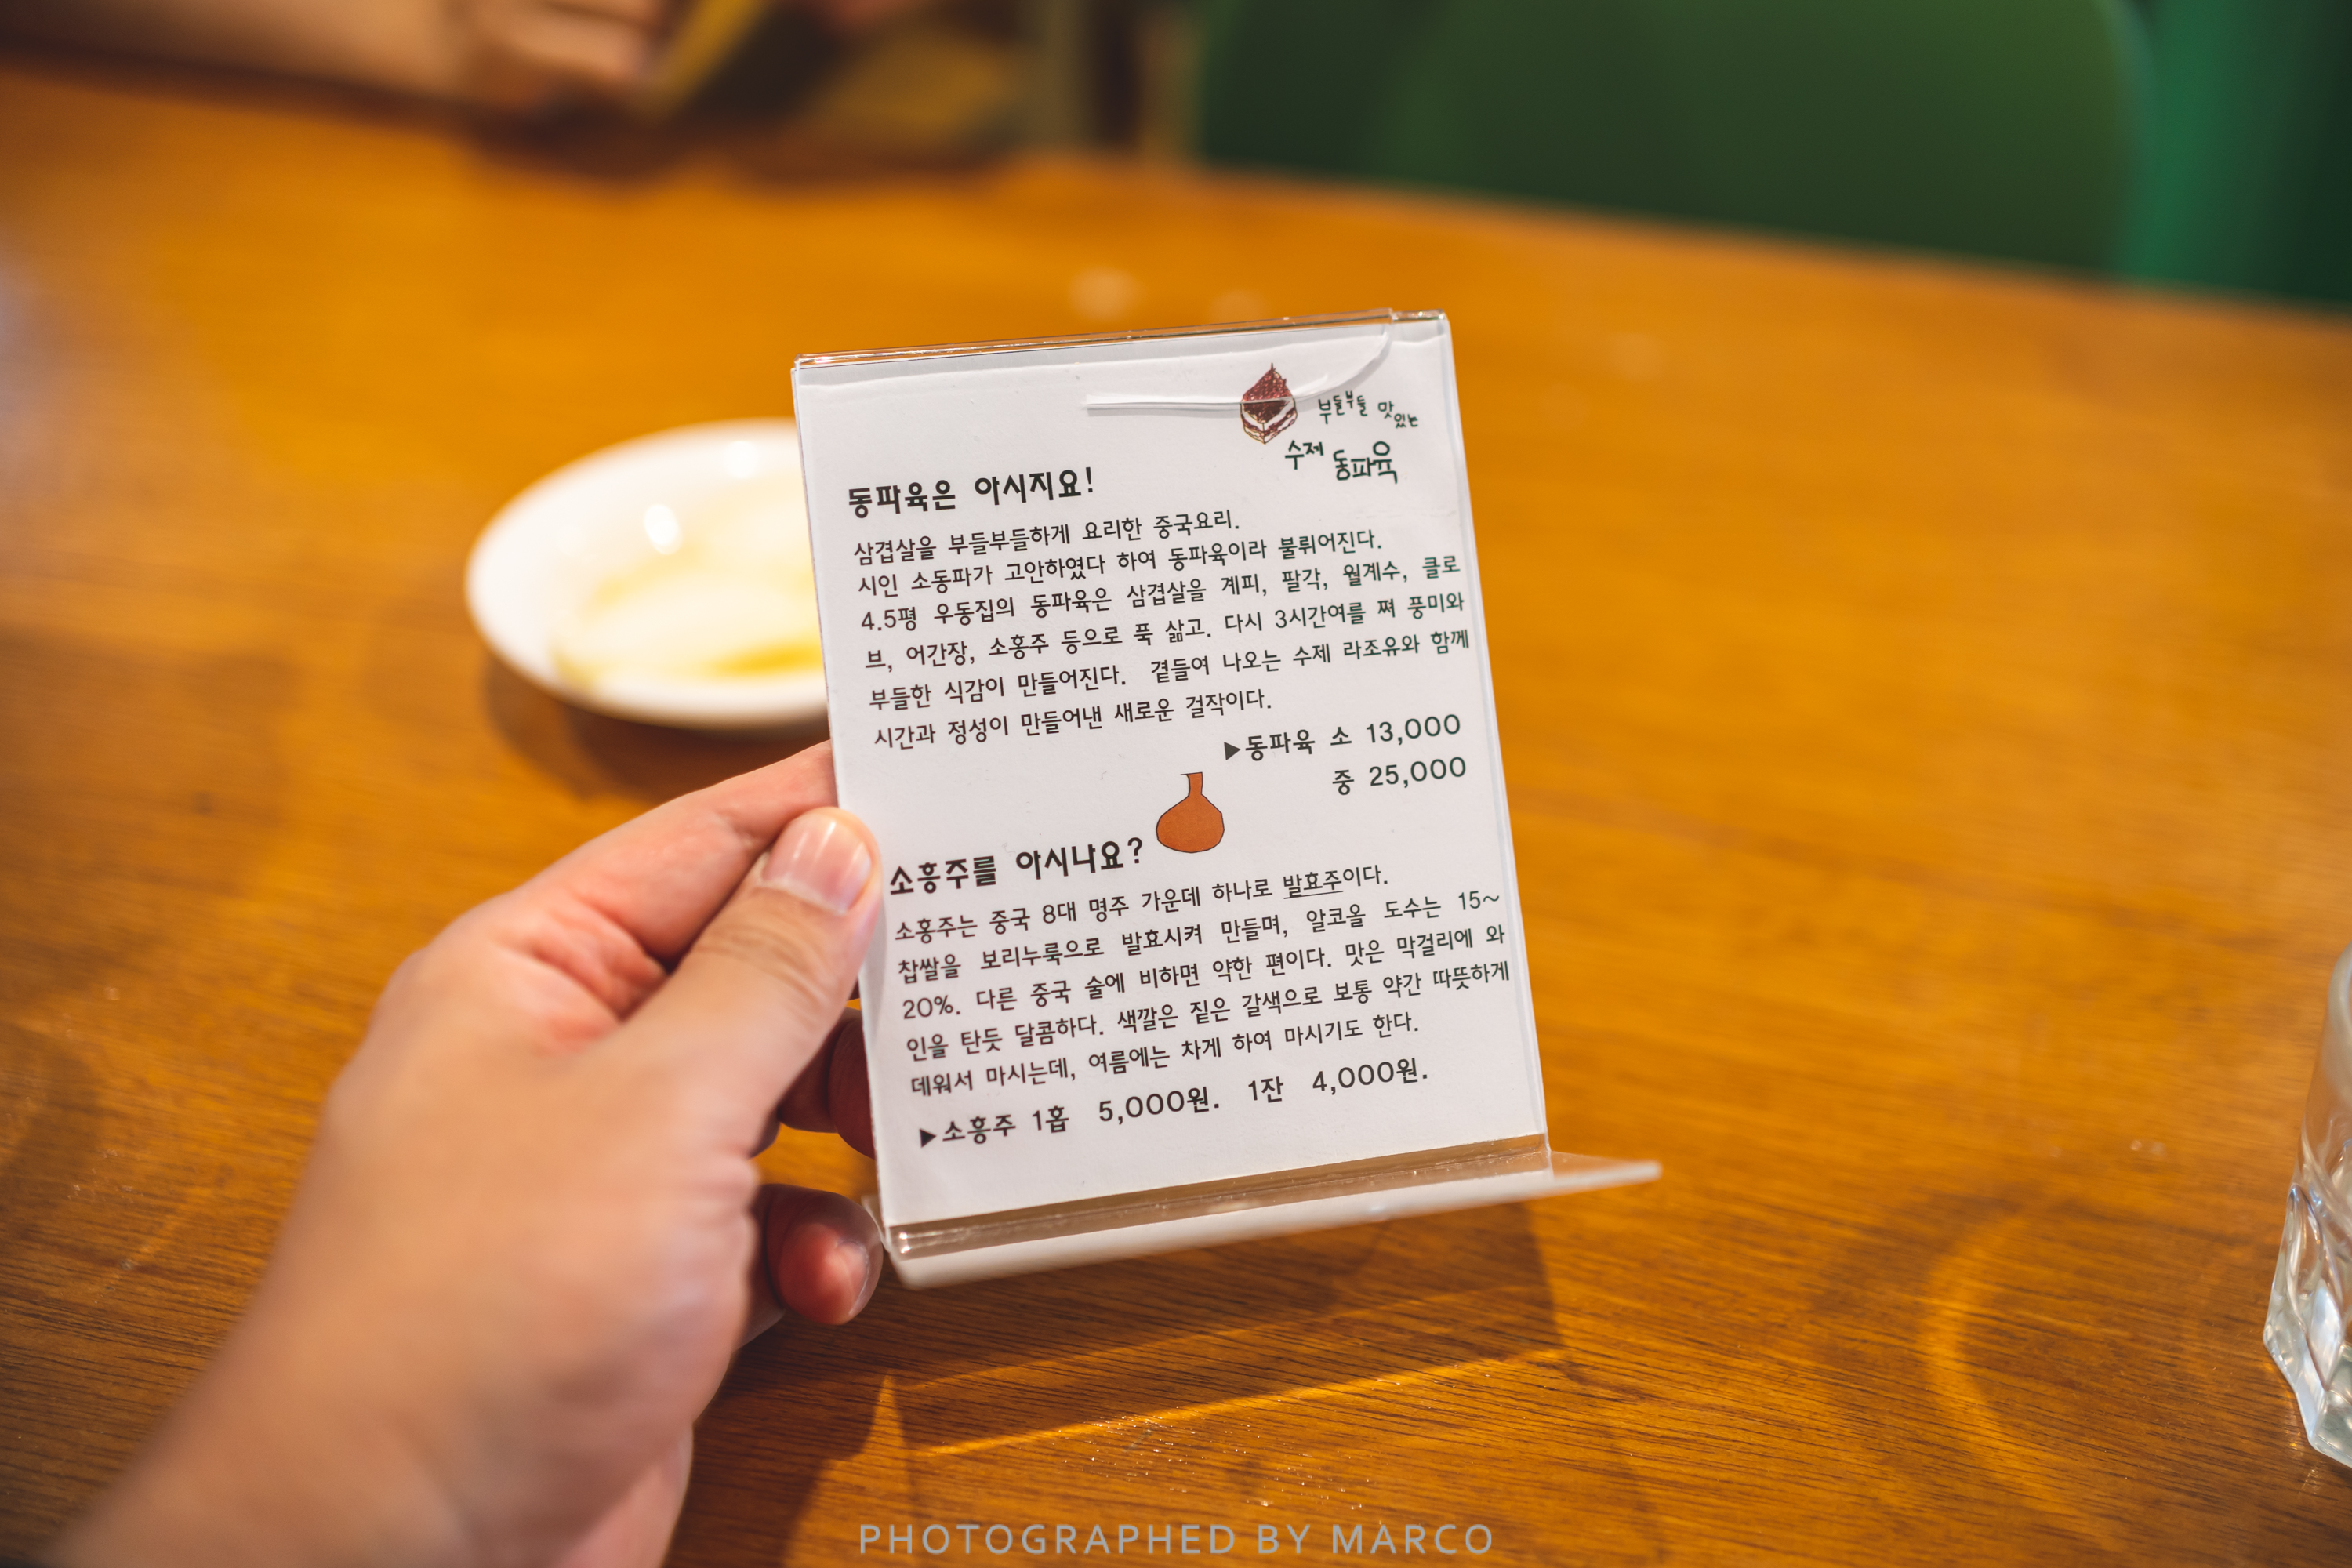 부들부들 맛있는
수제 동파육
동파육은 아시지요!
삼겹살을 부들부들하게 요리한 중국요리.
시인 소동파가 고안하였다 하여 동파육이라 불뤼어진다.
4.5평 우동집의 동파육은 삼겹살을 계피, 팔각, 월계수, 클로
브, 어간장, 소홍주 등으로 푹 삶고. 다시 3시간여를 쪄 풍미와
부들한 식감이 만들어진다. 곁들여 나오는 수제 라조유와 함께
시간과 정성이 만들어낸 새로운 걸작이다.
▶동파육 소 13,000
중 25,000
소흥주를 아시나요?
소흥주는 중국 8대 명주 가운데 하나로 발효주이다.
찹쌀을 보리누룩으로 발효시켜 만들며, 알코올 도수는 15~
20%. 다른 중국 술에 비하면 약한 편이다. 맛은 막걸리에 와
인을 탄듯 달콤하다. 색깔은 짙은 갈색으로 보통 약간 따뜻하게
데워서 마시는데, 여름에는 차게 하여 마시기도 한다.
▶소흥주 1홉 5,000원. 1잔 4,000원.
PHOTOGRAPHED BY MARCO